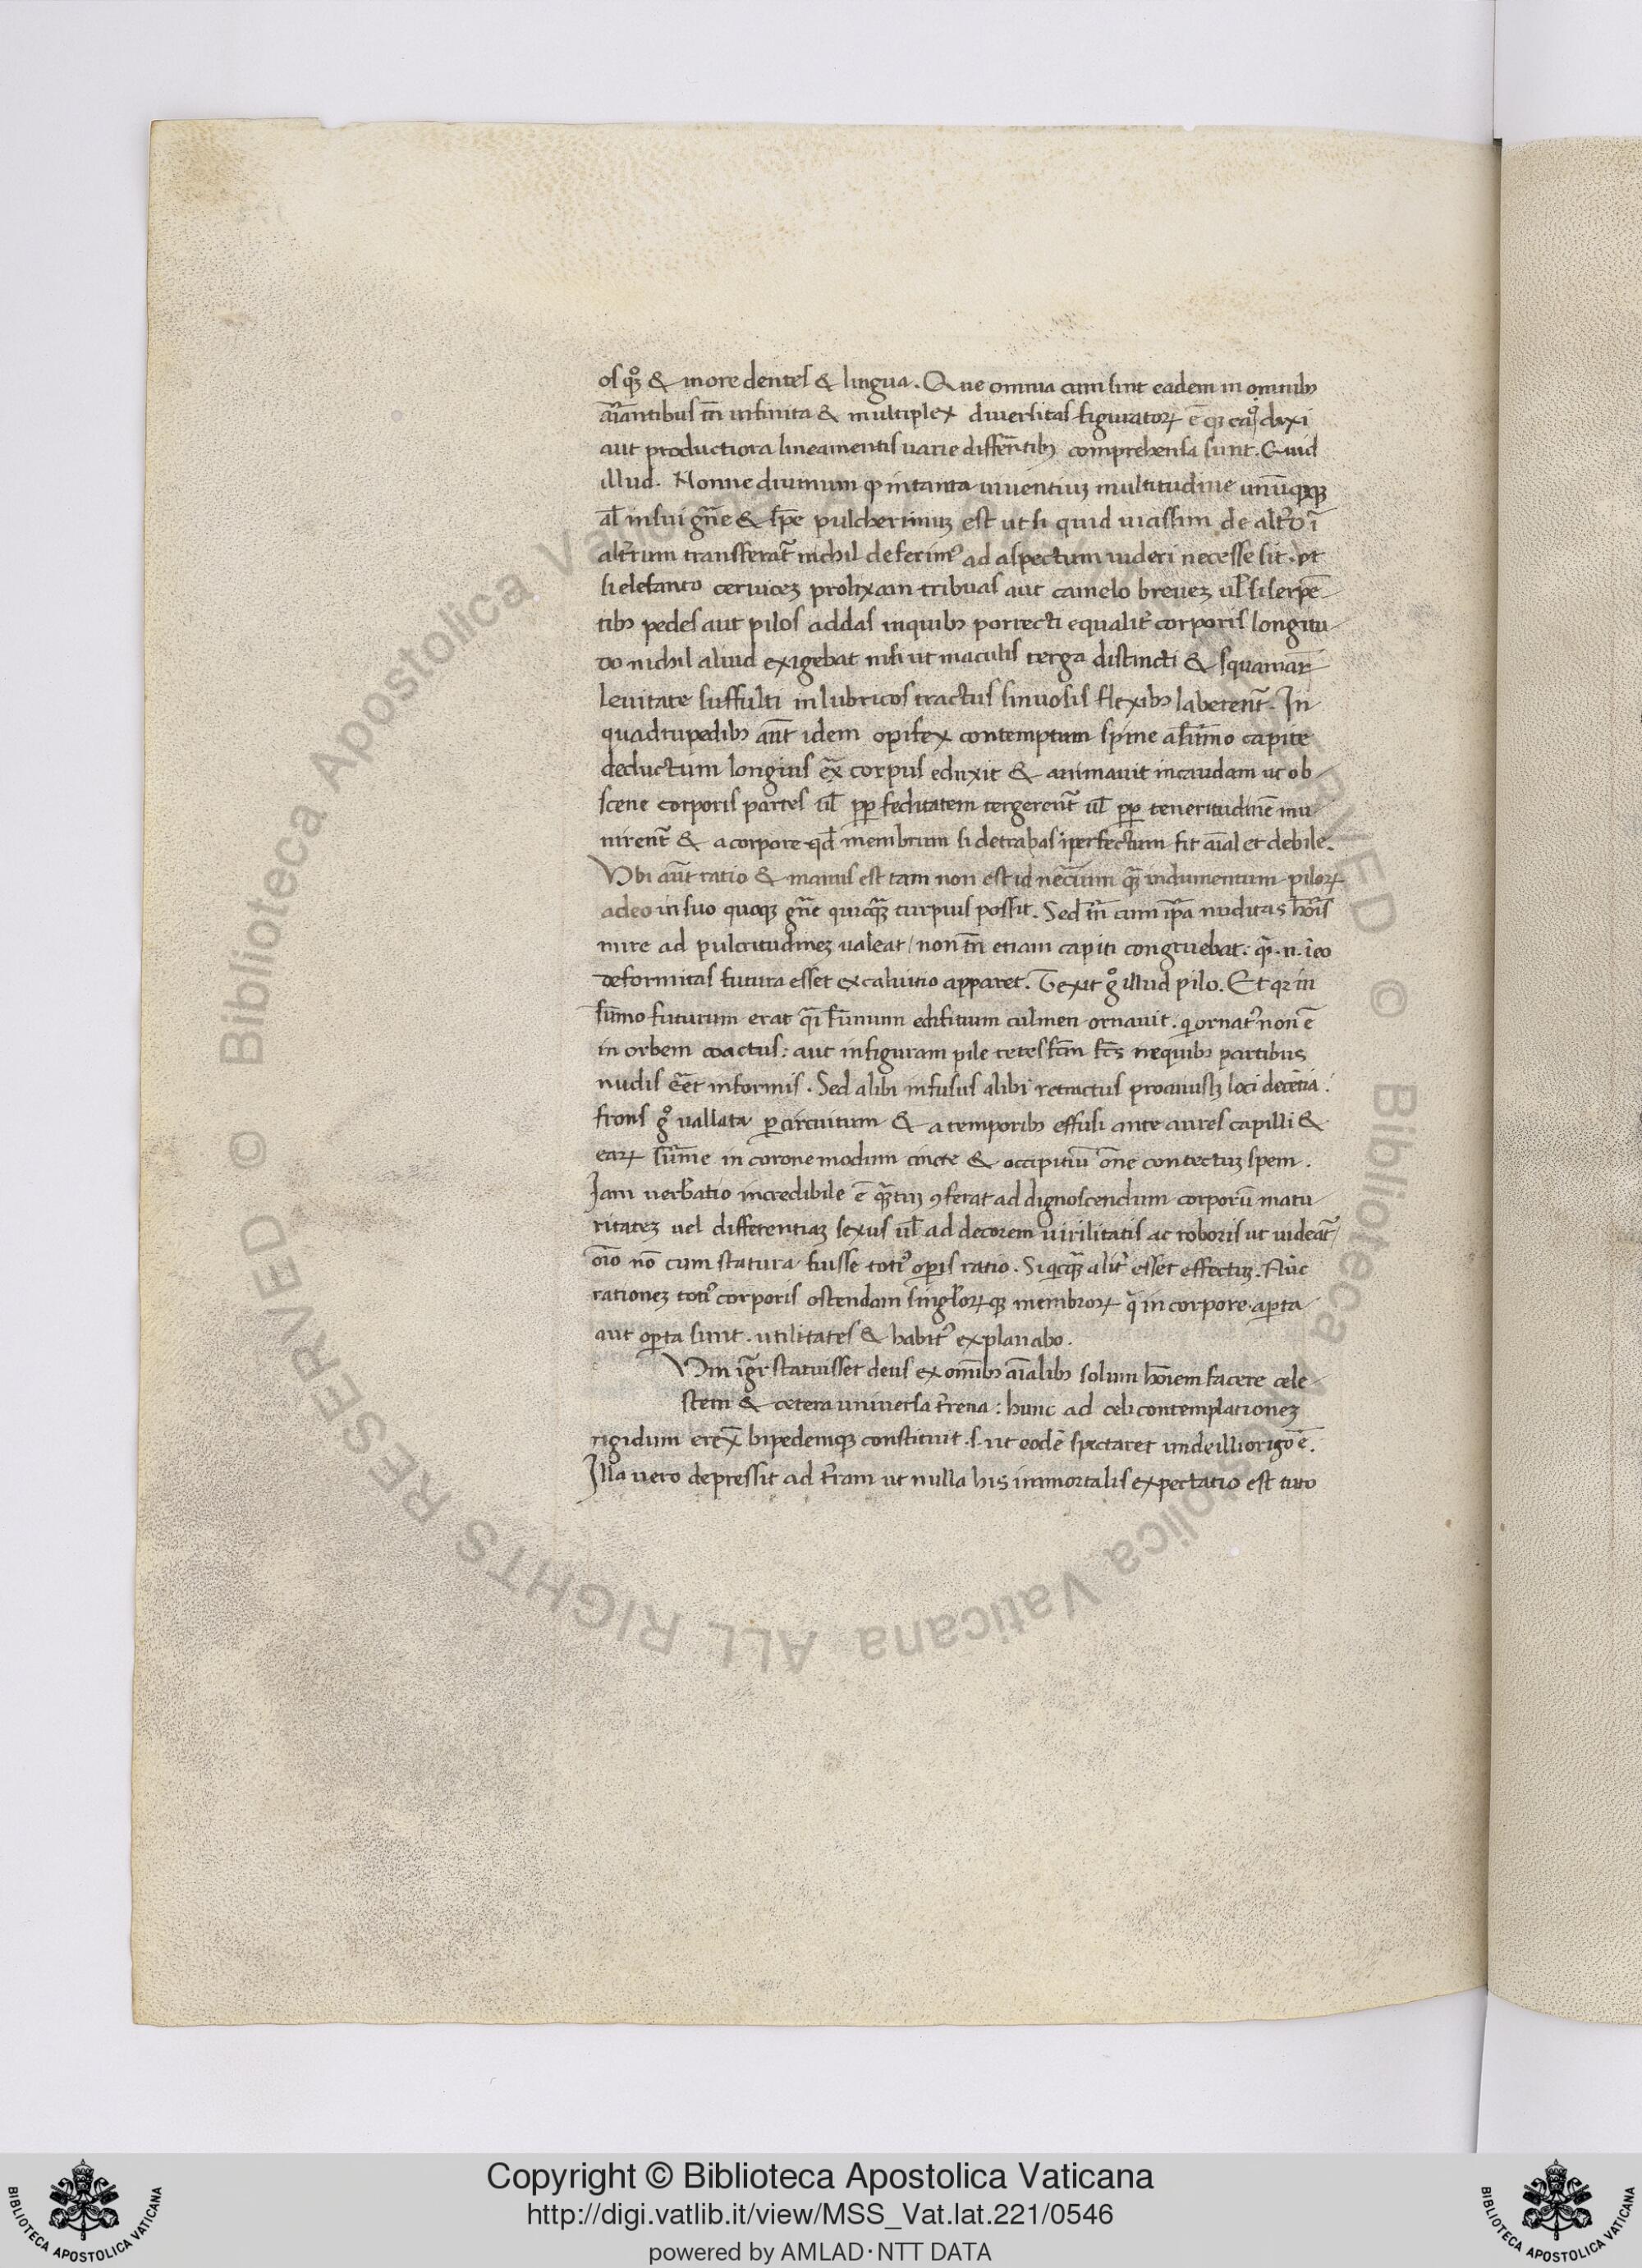 os qꝫ & in ore dentes & lingua. Que omnia cum sint eadem in omnibꝫ
aīantibus tn̄ infinita & multiplex diuersitas figuratoꝝ ē qꝫ eaꝗ duxi
aut productiora lineamentis uarie differn̄tibꝫ comprehensa sunt. Quid
illud. Nonne diuinum ꝙ in tanta uiuentiuꝫ multitudine unūqꝫqꝫ
al̄ in sui gn̄e & sp̄e pulcherrimuꝫ est ut si quid uicissim de alt̓o ī
alt̓rum transferat̄ nichil deferim᾽ ad aspectum uideri necesse sit. ut
si elefanto ceruiceꝫ prolixam tribuas aut camelo breueꝫ ul̄ si serpē
tibꝫ pedes aut pilos addas inquibꝫ porrecti equalit̓ corporis longitu
do nichil aliud exigebat nisi ut maculis terga distincti & squamaꝝ
leuitate suffulti in lubricos tractus sinuosis flexibꝫ laberent̄. In
quadrupedibꝫ aūt idem opifex contemptum spine asūmo capite
deductum longius ex̄ corpus eduxit & animauit incaudam ut ob
scene corporis partes ul̄ ꝓp feditatem tergerent̄ ul̄ ꝓp teneritudinē mu
nirent̄ & a corpore qd̄ membrum si detrahas iperfectum fit aīal et debile.
Vbi aūt ratio & manus est tam non est id nec̄ium qꝫ̄ indumentum piloꝝ
adeo in suo quoqꝫ gn̄e quicqꝫ̄ turpius possit. Sed tn̄ cum ip̄a nuditas hoīs
mire ad pulcritudineꝫ ualeat / non tn̄ etiam capiti congruebat: qͣ. n. ī eo
deformitas futura esset ex caluitio apparet. Texit gͦ illud pilo. Et qꝫ in
sūmo futurum erat qͣi sūmum edifitium culmen ornauit. qi ornat᾽ non ē
in orbem coactus: aut in figuram pile teres fc̄m fc̄s ne quibꝫ partibus
nudis ēēt informis. Sed alibi infusus alibi retractus pro cuiusqꝫ loci decētia.
frons gͦ uallata ꝑ circuitum & a temporibꝫ effusi ante aures capilli &
eaꝝ sūme in corone modum cincte & occipitiū om̄e contectuꝫ spem.
Iam uerb̄ atio incredibile ē qꝫ̄tuꝫ ꝯferat ad dignoscendum corporū matu
ritateꝫ uel differentiaꝫ sexus ul̄ ad decorem uirilitatis ac roboris ut uideat̄
oīo nō cum statura fuisse toti᾽ oꝑis ratio. Si qicqꝫ̄ alit̓ esset effectuꝫ. Nūc
rationeꝫ toti᾽ corporis ostendam singloꝝ qꝫ membroꝝ q̄ in corpore aꝑta
aut oꝑta sunt. utilitates & habit᾽ explanabo.
Vm igr̄ statuisset deus ex omībꝫ aīalibꝫ solum hoīem facere cele
stem & cetera uniuersa t̓rena: hunc ad celi contemplationeꝫ
rigidum erex̄ bipedemqꝫ constituit .s. ut eodē spectaret unde illi origo ē.
Illa uero depressit ad t̓ram ut nulla his immortalis expectatio est tuto
Copyright © Biblioteca Apostolica Vaticana
http://digi.vatlib.it/view/MSS_Vat.lat.221/0546
powered by AMLAD·NTT DATA